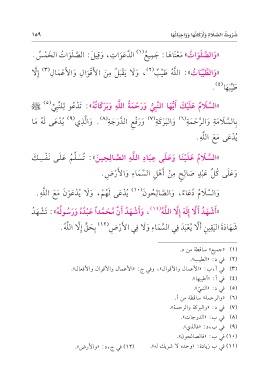 شُرُوطُ الصَّلَاةِ وَأَرْكَانُهَا وَوَاجِبَاتُهَا ١٥٩
«وَالصَّلَوَاتُ» مَعْنَاهَا: جَمِيعُ(١) الدَّعَوَاتِ، وَقِيلَ: الصَّلَوَاتُ الخَمْسُ.
«وَالطَّيِّبَاتُ»: اللَّهُ طَيِّبٌ(٢)، وَلَا يَقْبَلُ مِنَ الأَقْوَالِ وَالأَعْمَالِ(٣) إِلَّا
طَيِّبَهَا(٤).
«السَّلَامُ عَلَيْكَ أَيُّهَا النَّبِيُّ وَرَحْمَةُ اللَّهِ وَبَرَكَاتُهُ»: تَدْعُو لِلنَّبِيِّ(٥) ﷺ
بِالسَّلَامَةِ وَالرَّحْمَةِ(٦) وَالبَرَكَةِ(٧) وَرَفْعِ الدَّرَجَةِ(٨). وَالَّذِي(٩) يُدْعَى لَهُ مَا
يُدْعَى مَعَ اللَّهِ.
«السَّلَامُ عَلَيْنَا وَعَلَى عِبَادِ اللَّهِ الصَّالِحِينَ»: تُسَلِّمُ عَلَى نَفْسِكَ
وَعَلَى كُلِّ عَبْدٍ صَالِحٍ مِنْ أَهْلِ السَّمَاءِ وَالأَرْضِ.
وَالسَّلَامُ دُعَاءٌ، وَالصَّالِحُونَ(١٠) يُدْعَى لَهُمْ، وَلَا يُدْعَوْنَ مَعَ اللَّهِ.
«أَشْهَدُ أَلَّا إِلَهَ إِلَّا اللَّهُ(١١)، وَأَشْهَدُ أَنَّ مُحَمَّداً عَبْدُهُ وَرَسُولُهُ»: تَشْهَدُ
شَهَادَةَ اليَقِينِ أَلَّا يُعْبَدَ فِي السَّمَاءِ وَلَا فِي الأَرْضِ(١٢) بِحَقٍّ إِلَّا اللَّهُ.
(١) «جميع» ساقطة من
(٢) في د: «الطيب».
(٣) في أ، ب: «الأعمال والأقوال»، وفي ج: «الأعمال والأقوال والأفعال».
(٤) في أ: «أطيبها».
(٥) في د: «النبي».
(٦) «والرحمة» ساقطة من أ.
(٧) في د: «والبركة والرحمة».
(٨) في ب: «الدرجات».
(٩) في ب، د: «فالذي».
(١٠) في ب: «فالصالحون».
(١١) في ب زيادة: «وحده لا شريك له». (١٢) في ج، د: «والأرض».